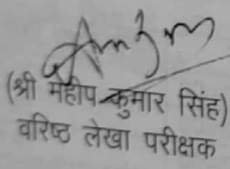 (श्री महीप कुमार सिंह)
वरिष्ठ लेखा परीक्षक